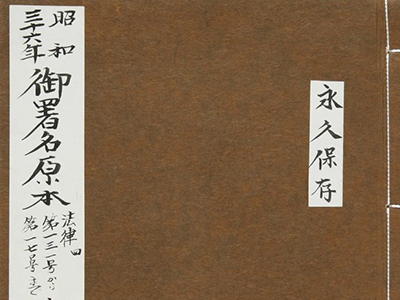 永久保存
昭和
三十六年
御署名原本
法律四
第一三一号から
第一七号まで